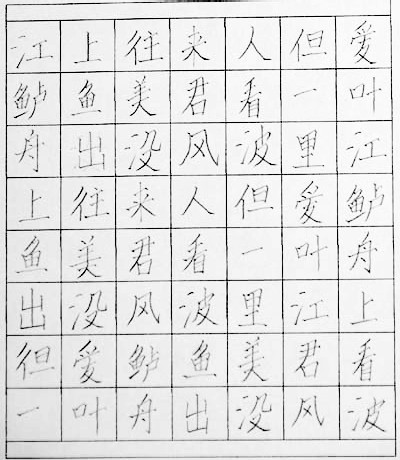 江上往来人但爱
鲈鱼美君看一叶
舟出没风波里江
上往来人但爱鲈
鱼美君看一叶舟
出没风波里江上
但爱鲈鱼美君看
一叶舟出没风波